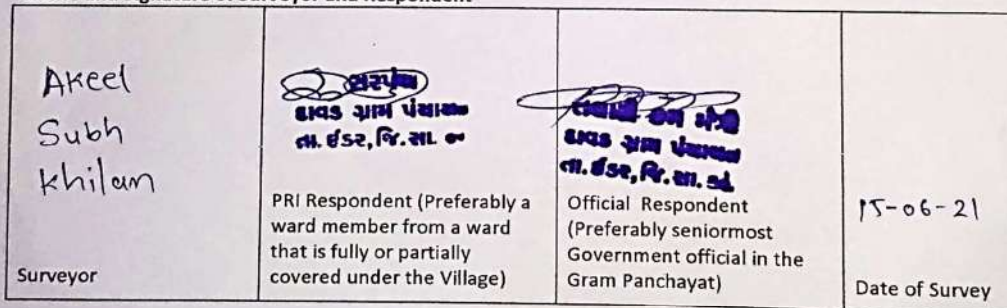 Akeel
Subh
Khilan
Surveyor
સરપંચ
દાવડ ગ્રામ પંચાયત
તા. ઈડર, જિ. સા.
PRI Respondent (Preferably a
ward member from a ward
that is fully or partially
covered under the Village)
તલાટી કમ મંત્રી
દાવડ ગ્રામ પંચાયત
તા. ઈડર, જિ. સા. કાં.
Official Respondent
(Preferably seniormost
Government official in the
Gram Panchayat)
15-06-21
Date of Survey